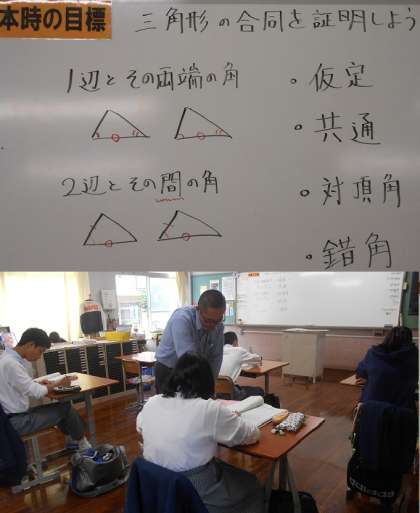 本時の目標 三角形の合同を証明しよう
1辺とその両端の角
・仮定
・共通
2辺とその間の角
・対頂角
・錯角